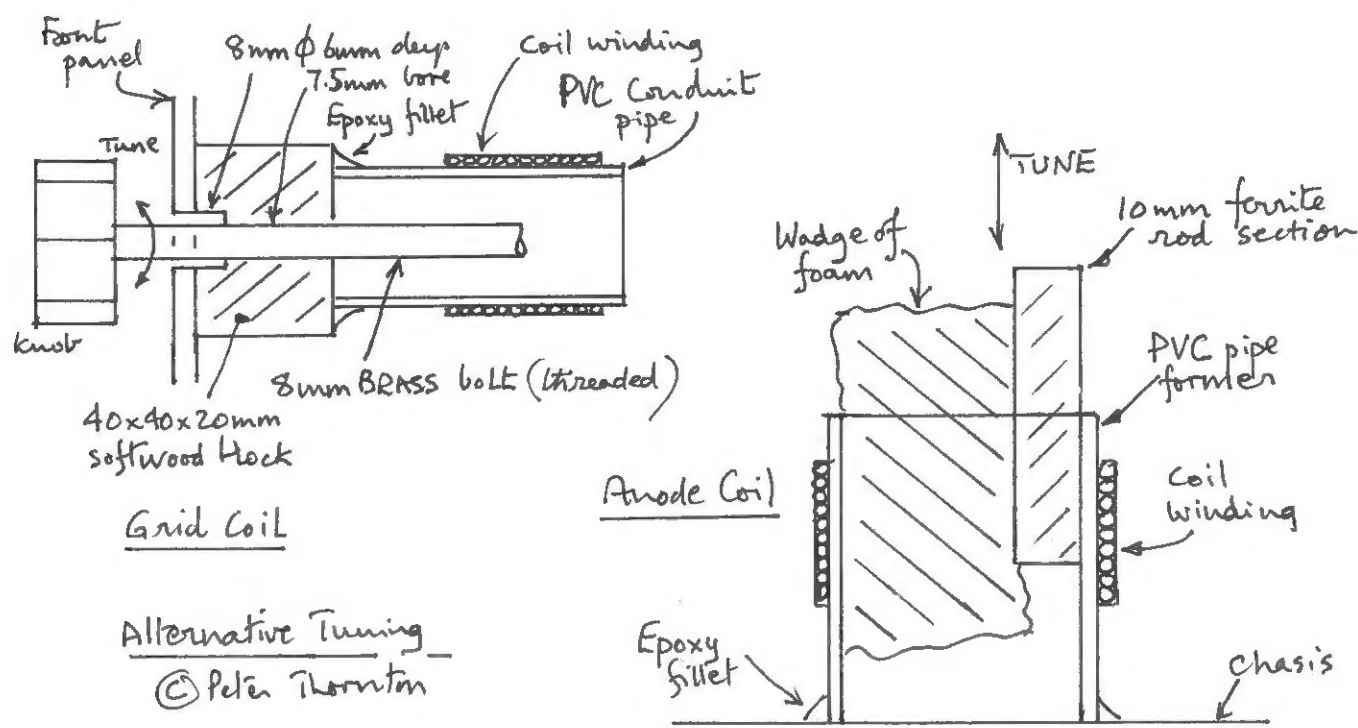 Front
panel
8mm ϕ 6mm deep
7.5mm bore
Epoxy fillet
Coil winding
PVC Conduit
pipe
Tune
Knob
8mm BRASS bolt (threaded)
40x40x20mm
softwood block
Grid Coil
Alternative Tuning
© Peter Thornton
TUNE
10mm ferrite
rod section
Wadge of
foam
PVC pipe
former
Anode Coil
Coil
winding
Epoxy
fillet
Chasis